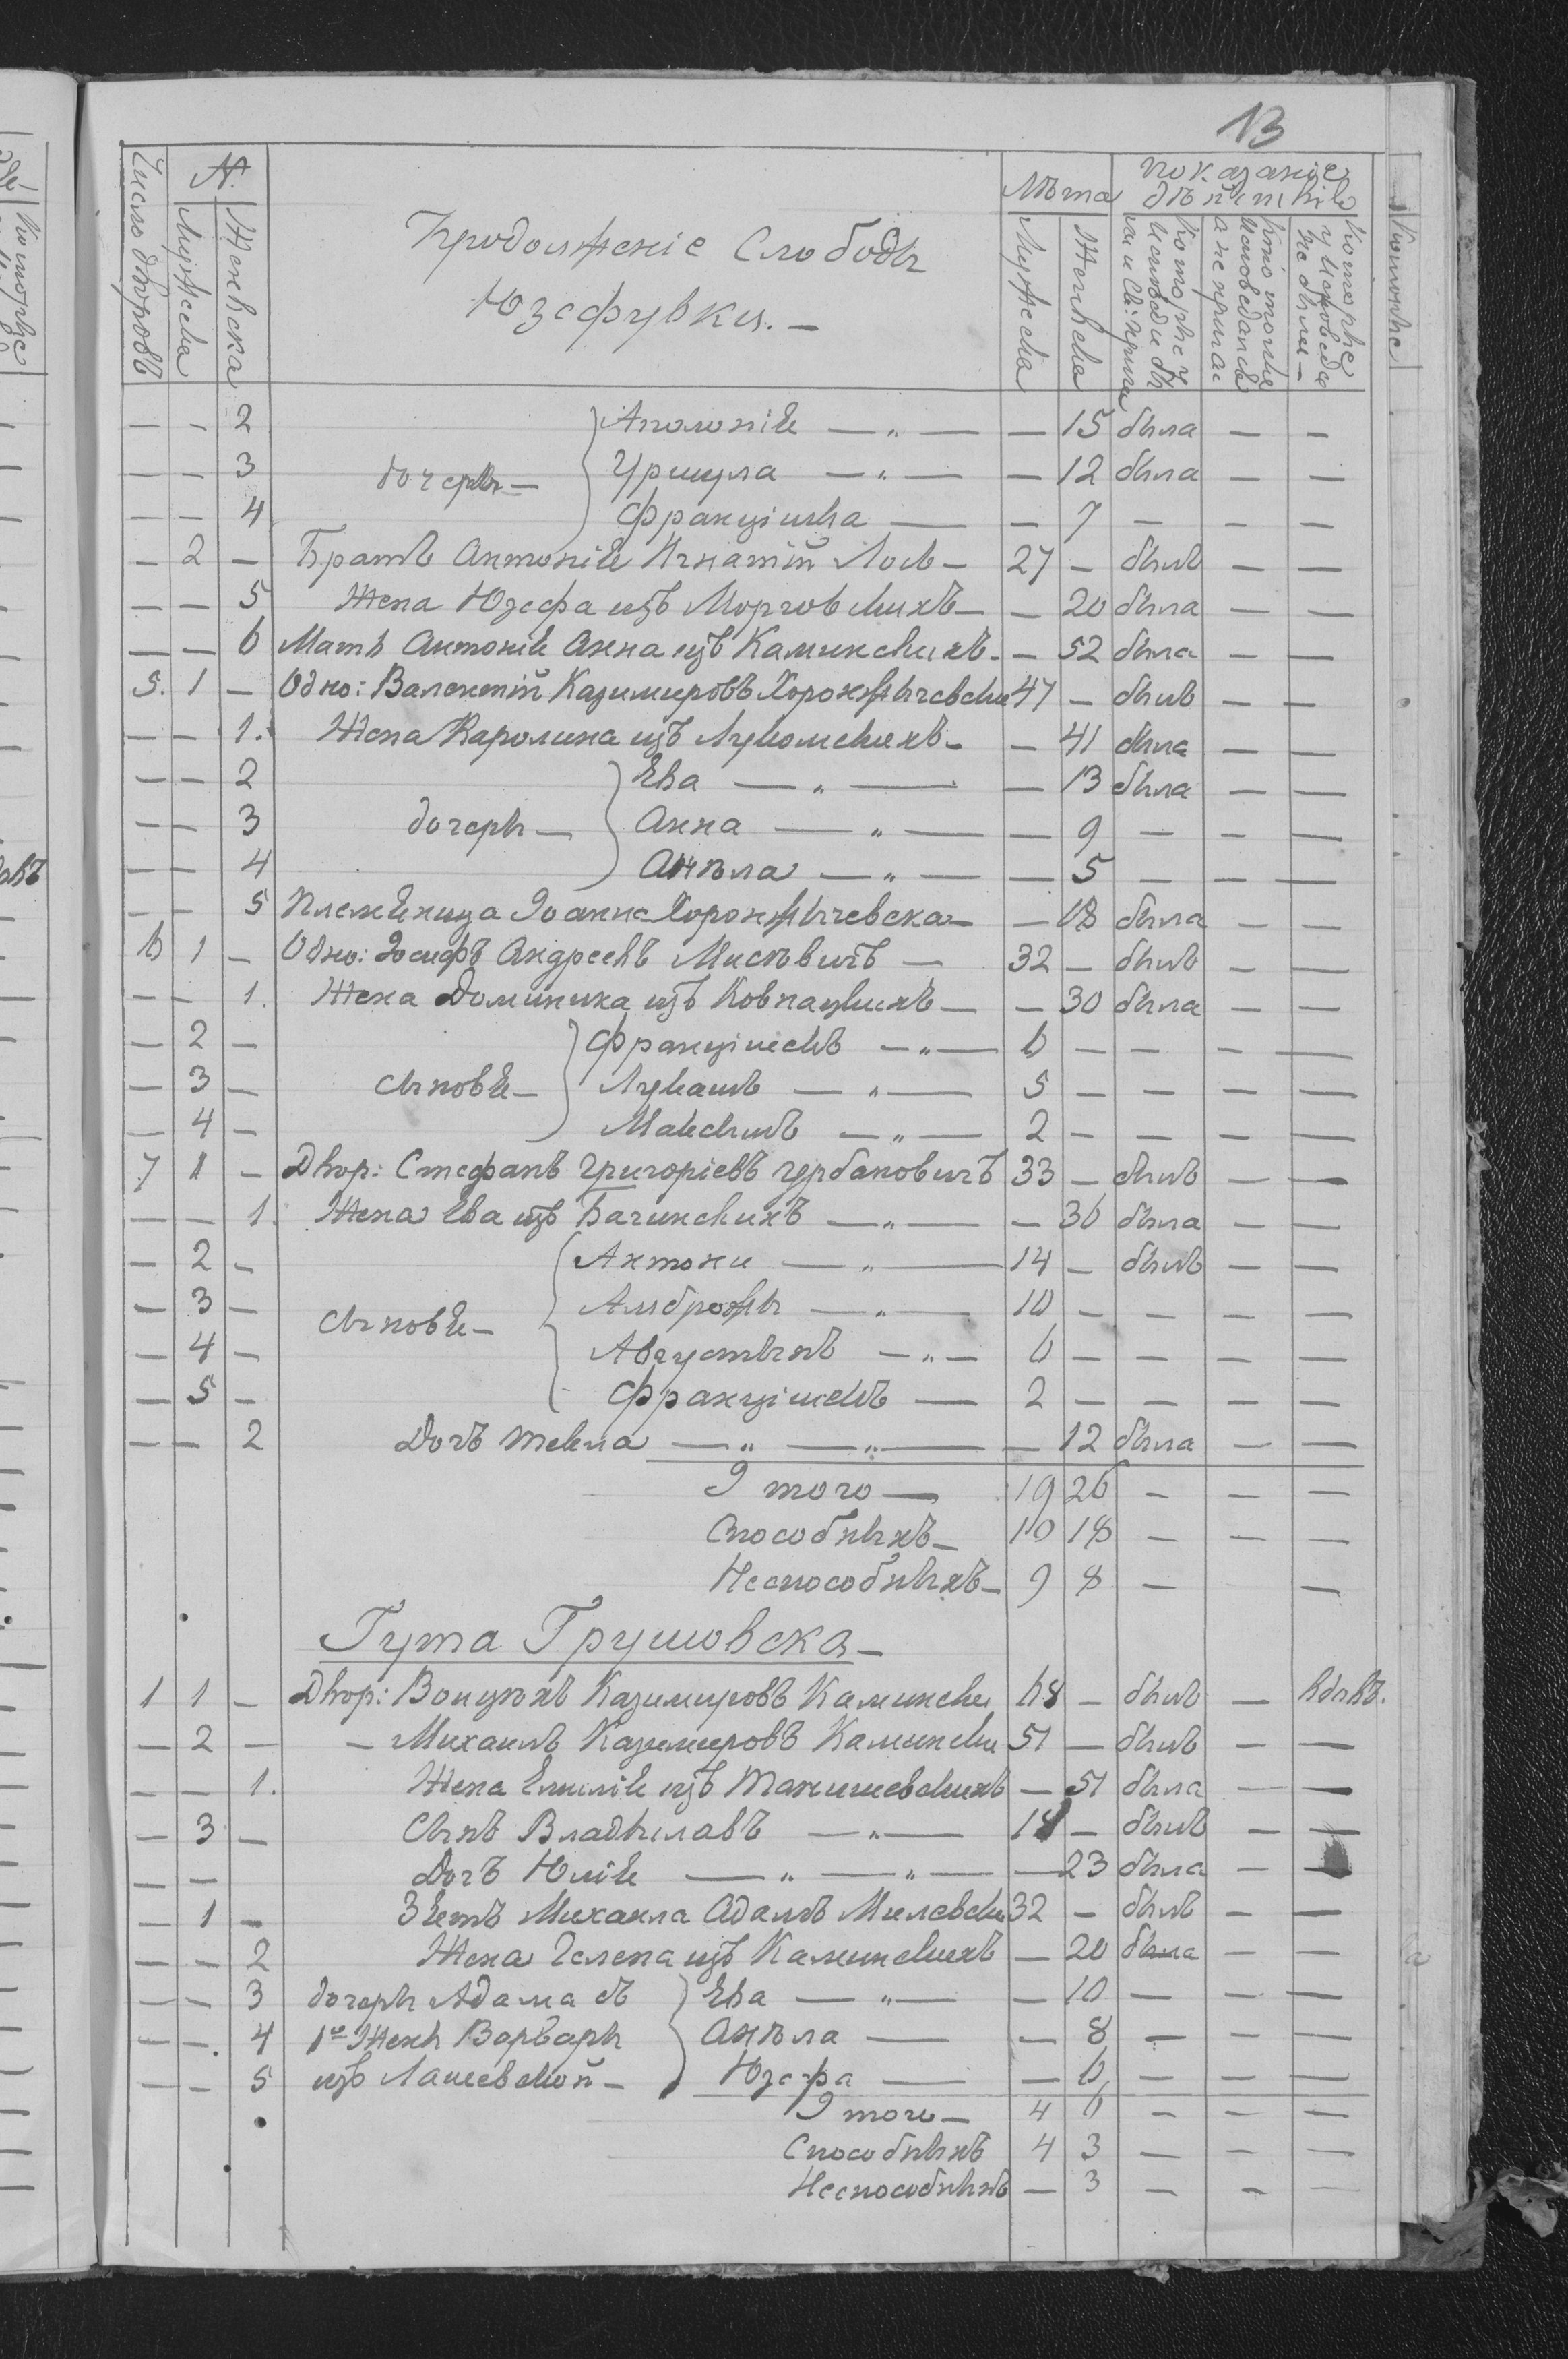 13
Число дворовъ
№.
Мужеска
Женвска
Продолженіе Слободы
Юзефувки. —
Лѣта
Мужеска
Женвска
показаніе
дѣйствій
Которые у
исповеди бы
ли и Св: прича
Которые
исповедалсь
а не причас
Которые
у исповеди
не были —
— - 2 Аполонія — „ — — 15 была — —
— — 3 дочеры — Уршула — „ — — 12 была — —
— — 4 Францішка — — 7 — — —
— 2 — Братъ Антонія Игнатій Лось — 27 — былъ — —
— — 5 Жена Юзефа изъ Морговскихъ — — 20 была — —
— — 6 Мать Антонія Анна изъ Каминскихъ — — 52 была — —
5. 1 — Одно: Валентій Казимировъ Хоронжычевски 47 — былъ — —
— — 1. Жена Каролина изъ Лукомскихъ — — 41 была — —
— — 2 Ева — „ — — 13 была — —
— — 3 дочеры — Анна — „ — — 9 — — —
— — 4 Анѣла — „ — — 5 — — —
— — 5 Племяница Іоанна Хоронжычевска — — 18 была — —
6 1 — Одно: Іосифъ Андреевъ Мисѣвичъ — 32 — былъ — —
— — 1. Жена Доминика изъ Ковнацкихъ — — 30 была — —
— 2 — Францішекъ — „ — 6 — — — —
— 3 — сыновя — Лукашъ — „ — 5 — — — —
— 4 — Максымъ — „ — 2 — — — —
7 1 — Двор: Стефанъ Григоріевъ Урбановичъ 33 — былъ — —
— — 1. Жена Ева изъ Багинскихъ — „ — — 36 была — —
— 2 — Антони — „ — 14 — былъ — —
— 3 — сыновя — Амброжы — „ — 10 — — — —
— 4 — Августынъ — „ — 6 — — — —
— 5 — Францішекъ — 2 — — — —
— — 2 Дочъ Текла — „ — „ — — 12 была — —
Итого — 19 26 — — —
Способныхъ — 10 18 — — —
Неспособныхъ — 9 8 — —
Гута Грушовска —
1 1 — Двор: Войцѣхъ Казимировъ Камински 68 — былъ — вдовъ.
— 2 — — Михаилъ Казимировъ Камински 51 — былъ — —
— — 1. Жена Емилія изъ Манишевскихъ — 51 была — —
— 3 — Сынъ Владыславъ — „ — 18 — былъ — —
— — Дочъ Юлія — „ — „ — — 23 была — —
— 1 — Зять Михаила Адамъ Милевски 32 — былъ — —
— — 2 Жена Гелена изъ Каминскихъ — 20 была — —
— — 3 дочеры Адама съ Ева — „ — — 10 — — —
— — 4 1ой Жены Варвары Анѣла — — 8 — — —
— — 5 изъ Лашевской — Юзефа — — 6 — — —
Итого — 4 6 — — —
Способныхъ 4 3 — — —
Неспособныхъ — 3 — — —